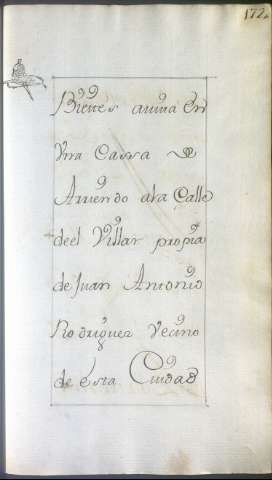 172.
Bienes arriva En
Vna Cassa
Arriendo ala Calle
deel Villar propia
de Juan Antonio
Rodriguez Vecino
de esta Ciudad